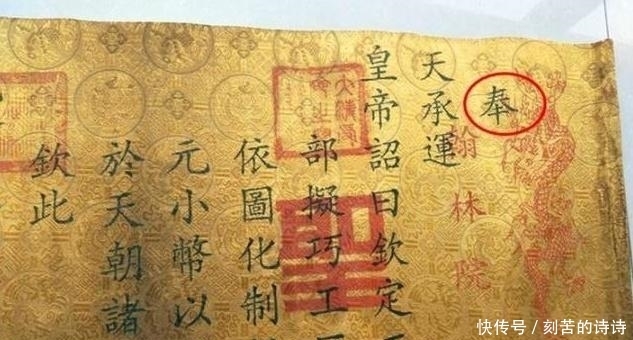 奉
翰林院
天承運
皇帝詔曰欽定
部擬巧工
依圖化制
元小幣以
於天朝諸
欽此
聖
快传号/刻苦的诗诗